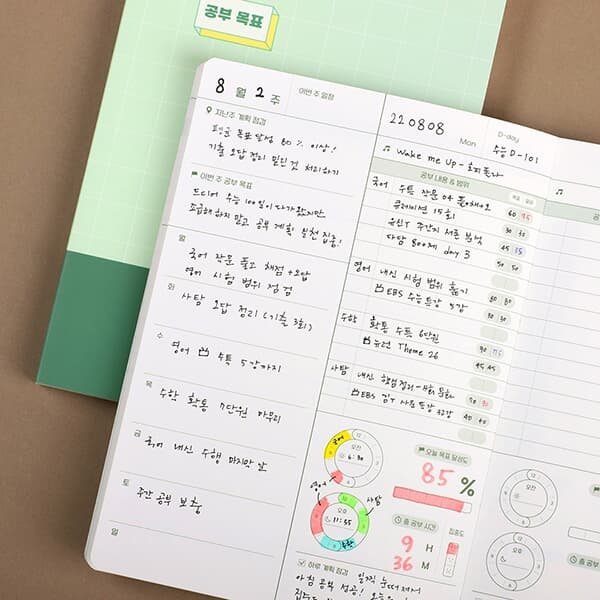 공부 목표
8 월 2 주
이번 주 일정
지난주 계획 점검
평균 목표 달성 80% 이상!
기출 오답 정리 밀린 것 처리하기
이번 주 공부 목표
드디어 수능 100일이 다가왔지만
조급해하지 말고 공부 계획 실천 집중!
월
국어 작문 풀고 채점 + 오답
영어 시험 범위 점검
화
사탐 오답 정리 (기출 3회)
수
영어 수특 5강까지
목
수학 확통 7단원 마무리
금
국어 내신 수행 마지막 날
토
주간 공부 보충
일
220808
Mon
D-day
수능 D-101
Wake me up -
공부 내용 & 범위
국어 수특 작문 04 풀어채오
60 75
15회
30 30
주간지 서론 분석
45 35
다담 800제 day 3
50 50
영어 내신 시험 범위 훑기
EBS 수능특강 5강
30 30
수학 확통 수특 6단원
90
뉴런 Theme 26
45 45
사탐 내신
EBS 사문 특강
40 40
국어
오전
6:30
영어
사탐
오후
11:55
수학
오늘 목표 달성도
85 %
총 공부 시간
집중도
9 H
36 M
하루 계획 점검
일찍 눈떠져서
아침 공부 성공!
오전
오후
%
H
M